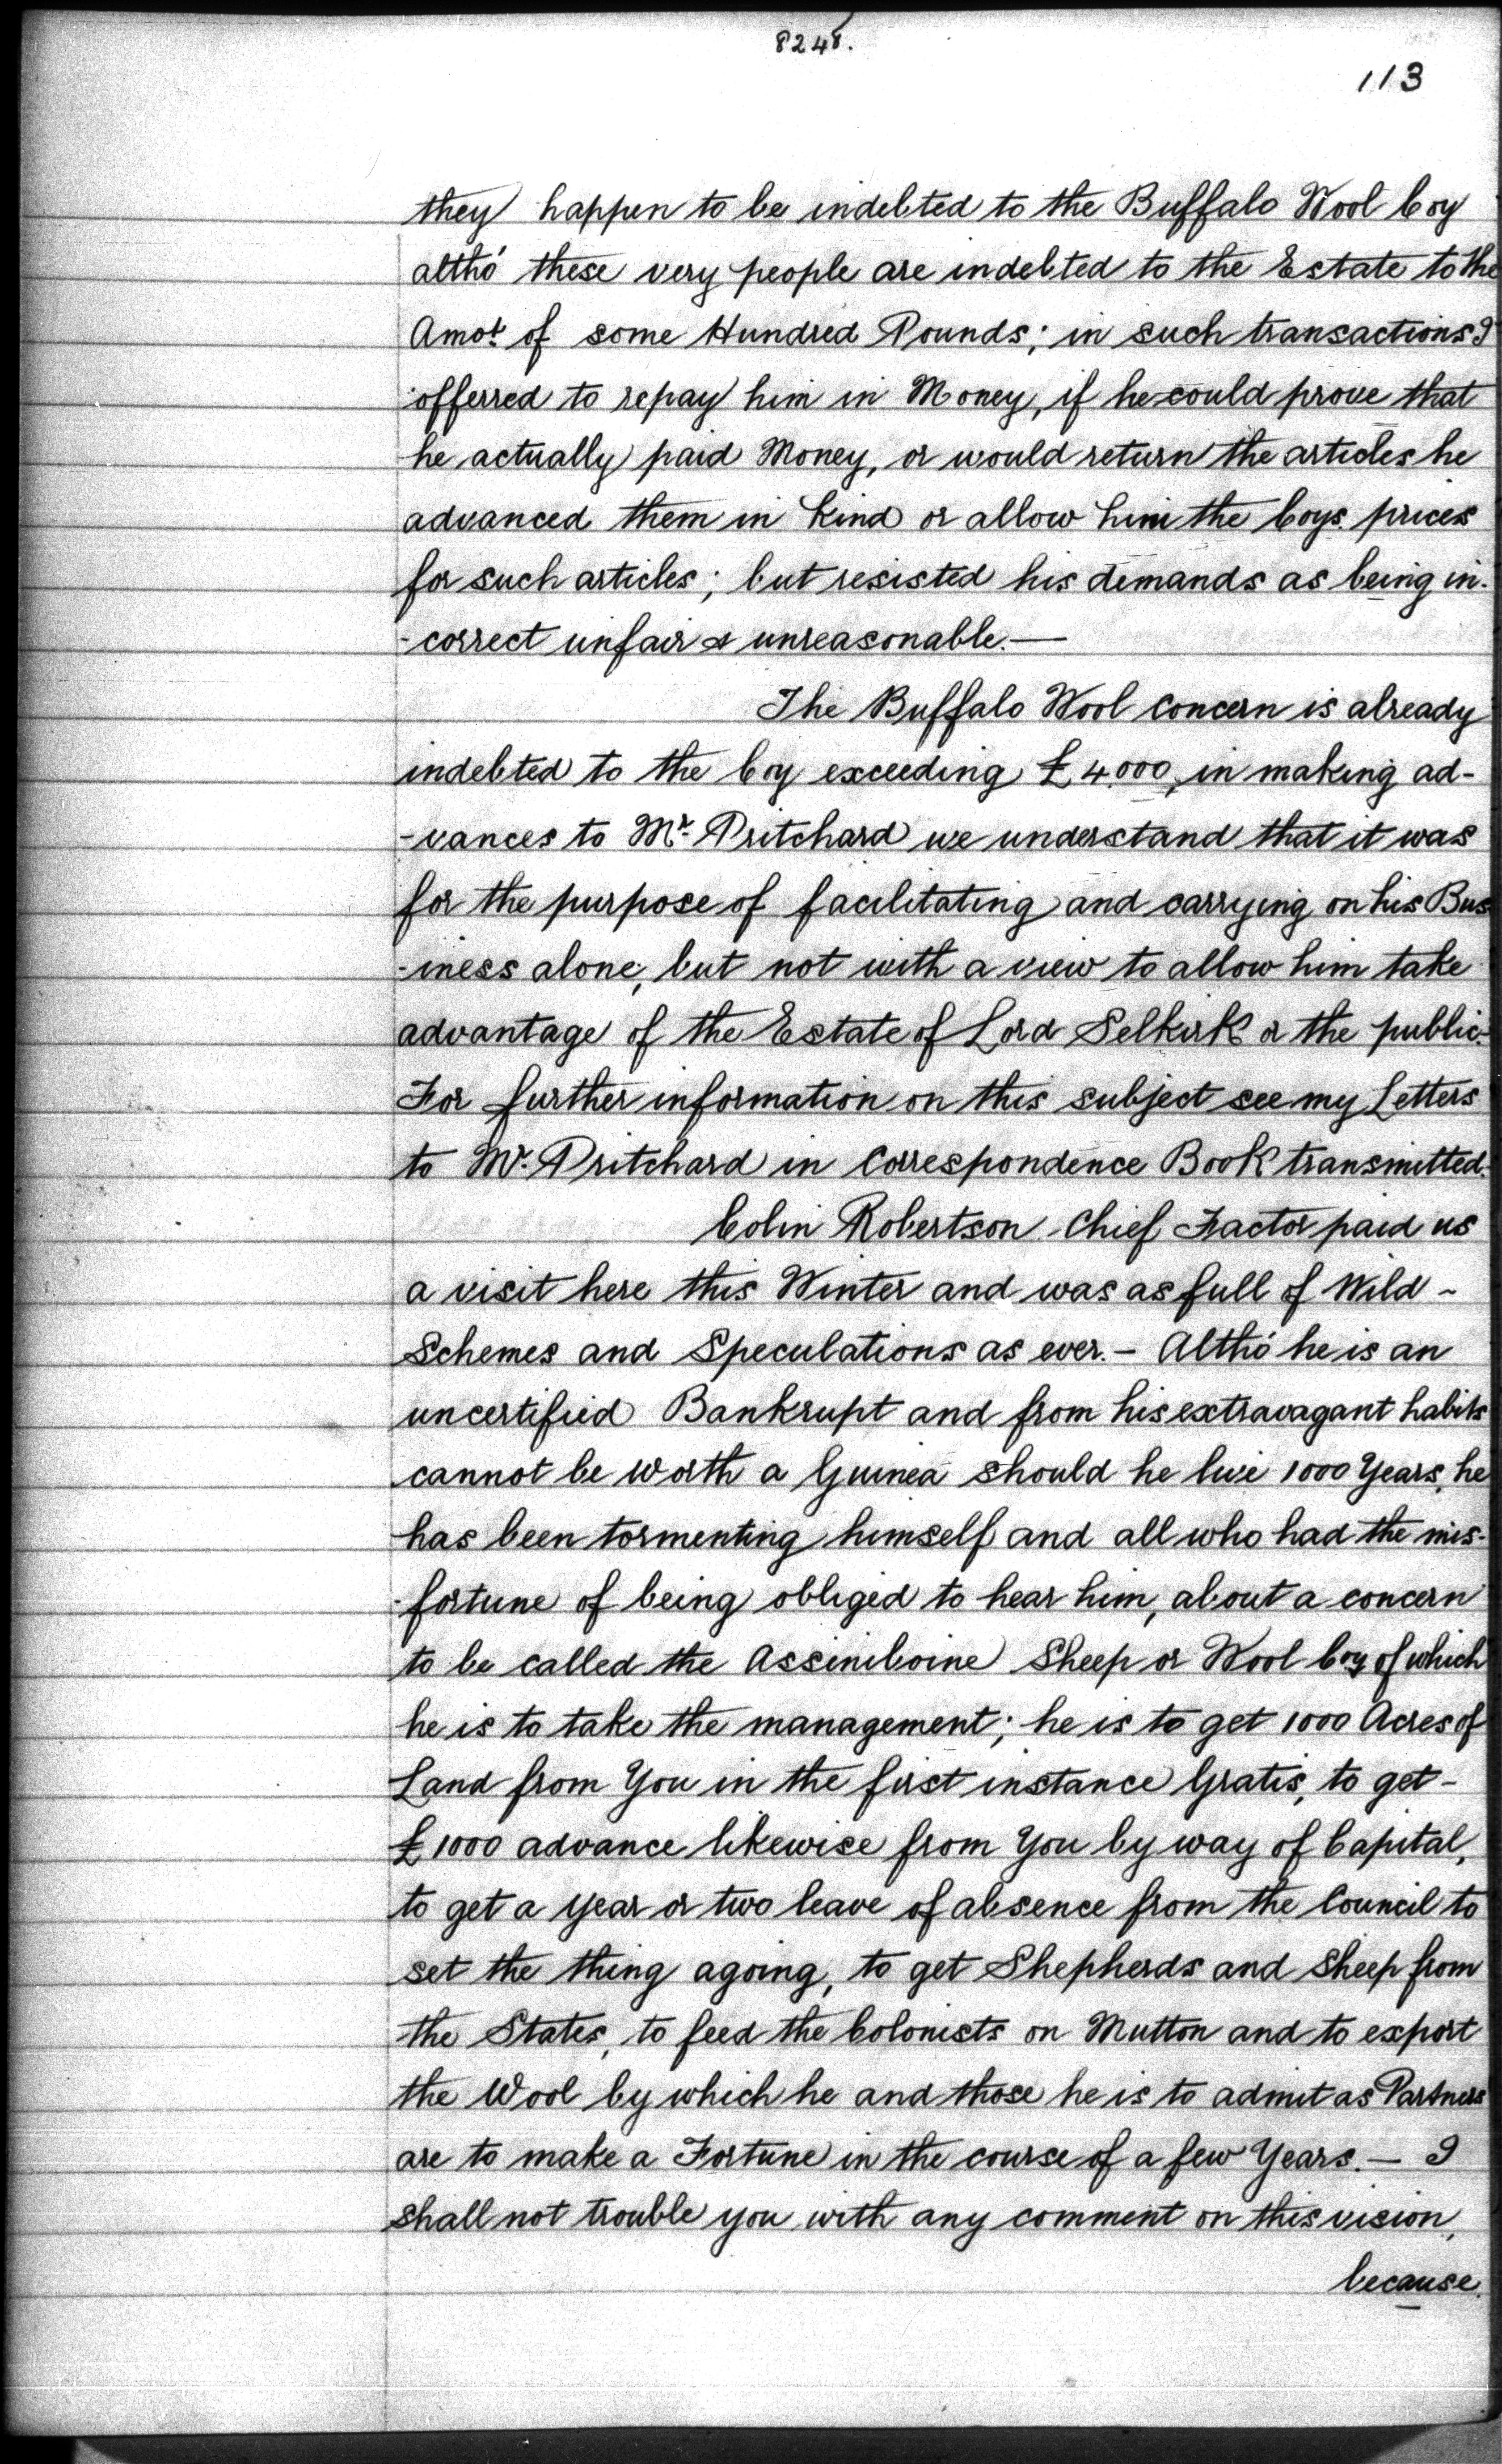 8248.
113
they happen to be indebted to the Buffalo Wool Coy
altho' these very people are indebted to the Estate to the
Amot. of some Hundred Pounds; in such transactions I
offerred to repay him in Money, if he could prove that
he actually paid Money, or would return the articles he
advanced them in Kind or allow him the Coys. prices
for such articles; but resisted his demands as being in-
-correct unfair & unreasonable.—
The Buffalo Wool Concern is already
indebted to the Coy exceeding £4.000, in making ad-
-vances to Mr. Pritchard we understand that it was
for the purpose of facilitating and carrying on his Bus
-iness alone, but not with a view to allow him take
advantage of the Estate of Lord Selkirk or the public.-
For further information on this subject see my Letters
to Mr. Pritchard in Correspondence Book transmitted.
Colin Robertson Chief Factor paid us
a visit here this Winter and was as full of Wild -
Schemes and Speculations as ever.- Altho' he is an
uncertified Bankrupt and from his extravagant habits
cannot be worth a Guinea should he live 1000 Years, he
has been tormenting himself and all who had the mis-
-fortune of being obliged to hear him, about a concern
to be called the Assiniboine Sheep or Wool Coy of which
he is to take the management; he is to get 1000 Acres of
Land from You in the first instance Gratis, to get -
£1000 advance likewise from You by way of Capital,
to get a year or two leave of absence from the Council to
set the thing agoing, to get Shepherds and Sheep from
the States, to feed the Colonists on Mutton and to export
the Wool by which he and those he is to admit as Partners
are to make a Fortune in the course of a few Years.— I
shall not trouble you with any comment on this vision,
because.